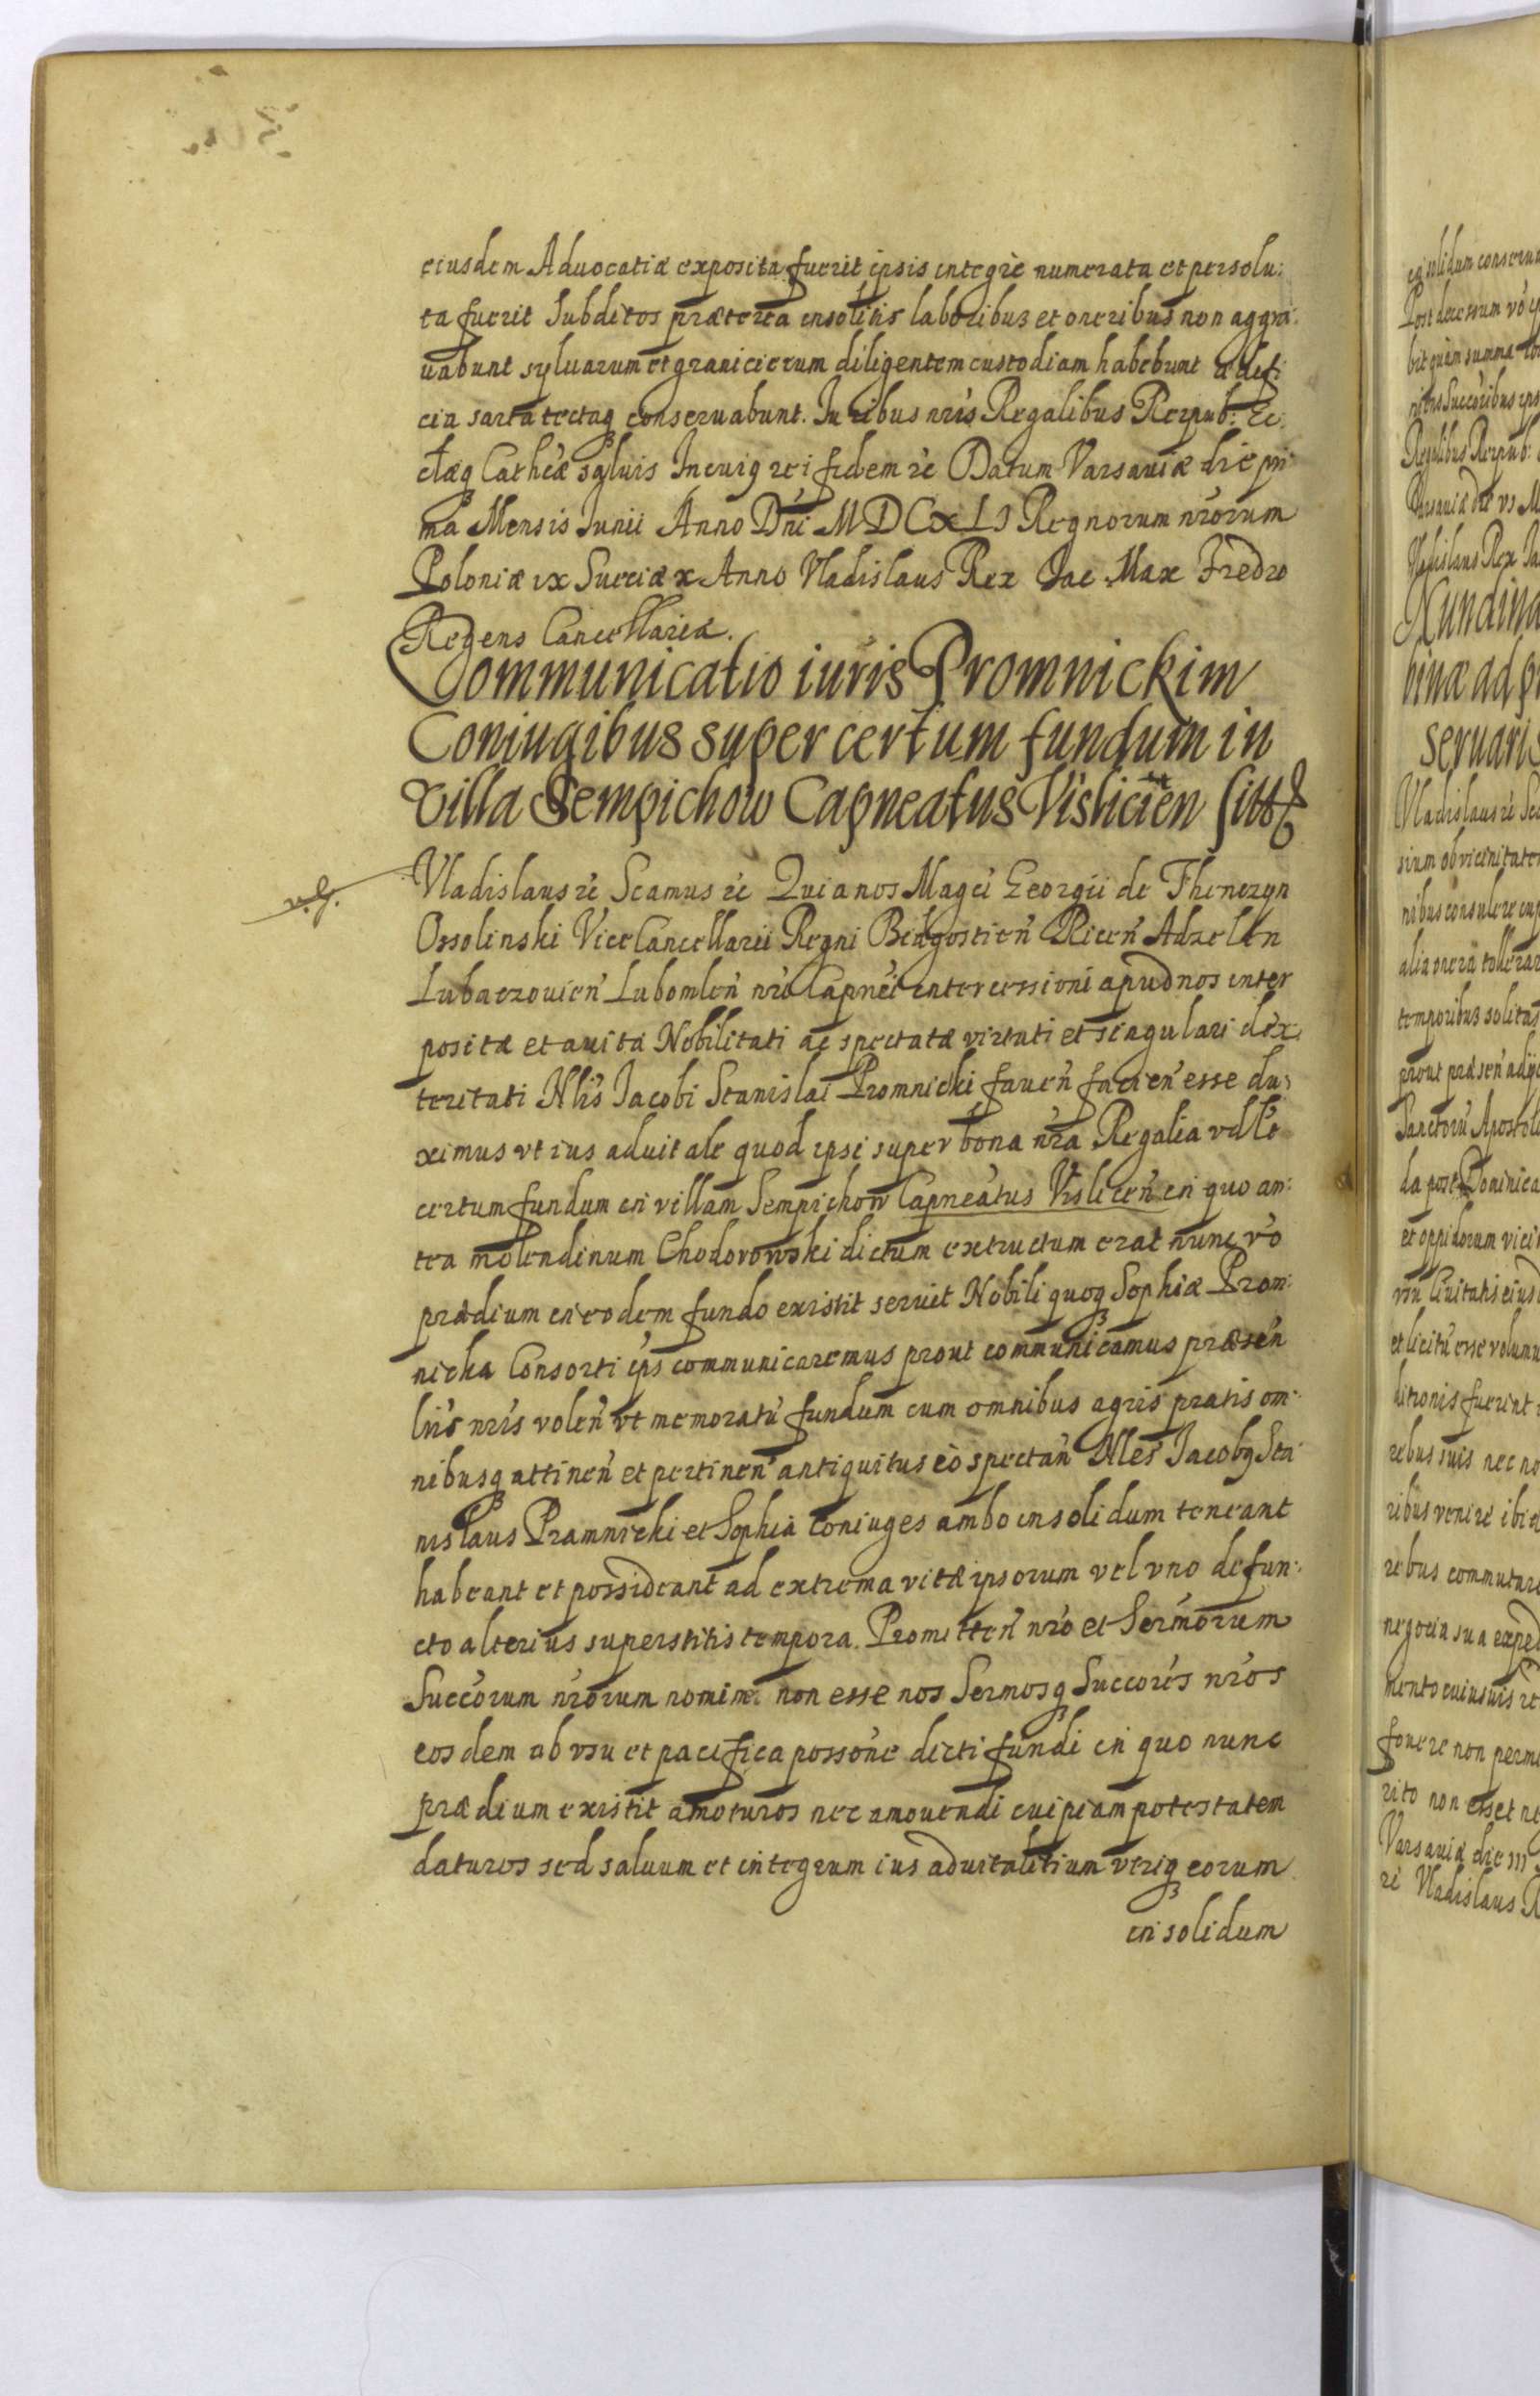 eiusdem Aduocatiæ exposita fuerit ipsis integrè numerata et persolu:
ta fuerit Subditos præterea insolitis laboribus et oneribus non aggra:
uabunt syluarum et granicierum diligentem custodiam habebunt ædifi:
cia sarta tectaq conseruabunt. Iuribus nr̃is Regalibus Reipub: Ec:
cl̃æq Cathc̃æ saluis In cuiq rei fidem rc̃ Datum Varsauiæ die pri
ma Mensis Iunii Anno Dni MDCXLI Regnorum nr̃orum
Poloniæ ix Sueciæ x Anno Vladislaus Rex Iac Max Fredro
Regens Cancellariæ.
Communicatio iuris Promnickim
Coniugibus super certum fundum in
Villa Sempichow Capneatus Vislicien̄ sitt
Vladislaus rc̃ Scamus rc̃ Quia nos Magci Georgii de Thenczyn
Ossolinski ViceCancellarii Regni Bidgostien̄ Ricen̄ Adzelen
Lubaczouien̄ Lubomlen̄ nr̃i Capnei intercessioni apud nos inter
positæ et auitæ Nobilitati ac spectatæ virtuti et singulari dex
teritati Nlis Iacobi Stanislai Promnicki fauen̄ facien̄ esse du:
ximus vt ius aduitale quod ipsi super bona nr̃a Regalia vdlt
certum fundum in villam Sempichow Capneatus Vislicen̄ in quo an:
tea molendinum Chodorowski dictum extructum erat nunc vo
prædium in eodem fundo existit seruit Nobili quoq Sophiæ Prom:
nicka Consorti ips communicaremus prout communicamus præsen̄
lriis nr̃is volen̄ vt memoratũ fundum cum omnibus agris pratis om:
nibusq attinen̄ et pertinen̄ antiquitus eò spectan̄ Nles Iacobq Sta
nislaus Pramnicki et Sophia Coniuges ambo insolidum teneant
habeant et possideant ad extrema vitæ ipsorum vel vno defun:
cto alterius superstitis tempora. Promitten̄ nr̃o et Sermorum
Succorum nr̃orum nomine non esse nos Sermosq Succores nr̃os
eosdem ab vsu et pacifica possone dicti fundi in quo nunc
prædium existit amoturos nec amouendi cuipiam potestatem
daturos sed saluum et integrum ius aduitalitium vtriq eorum
in solidum